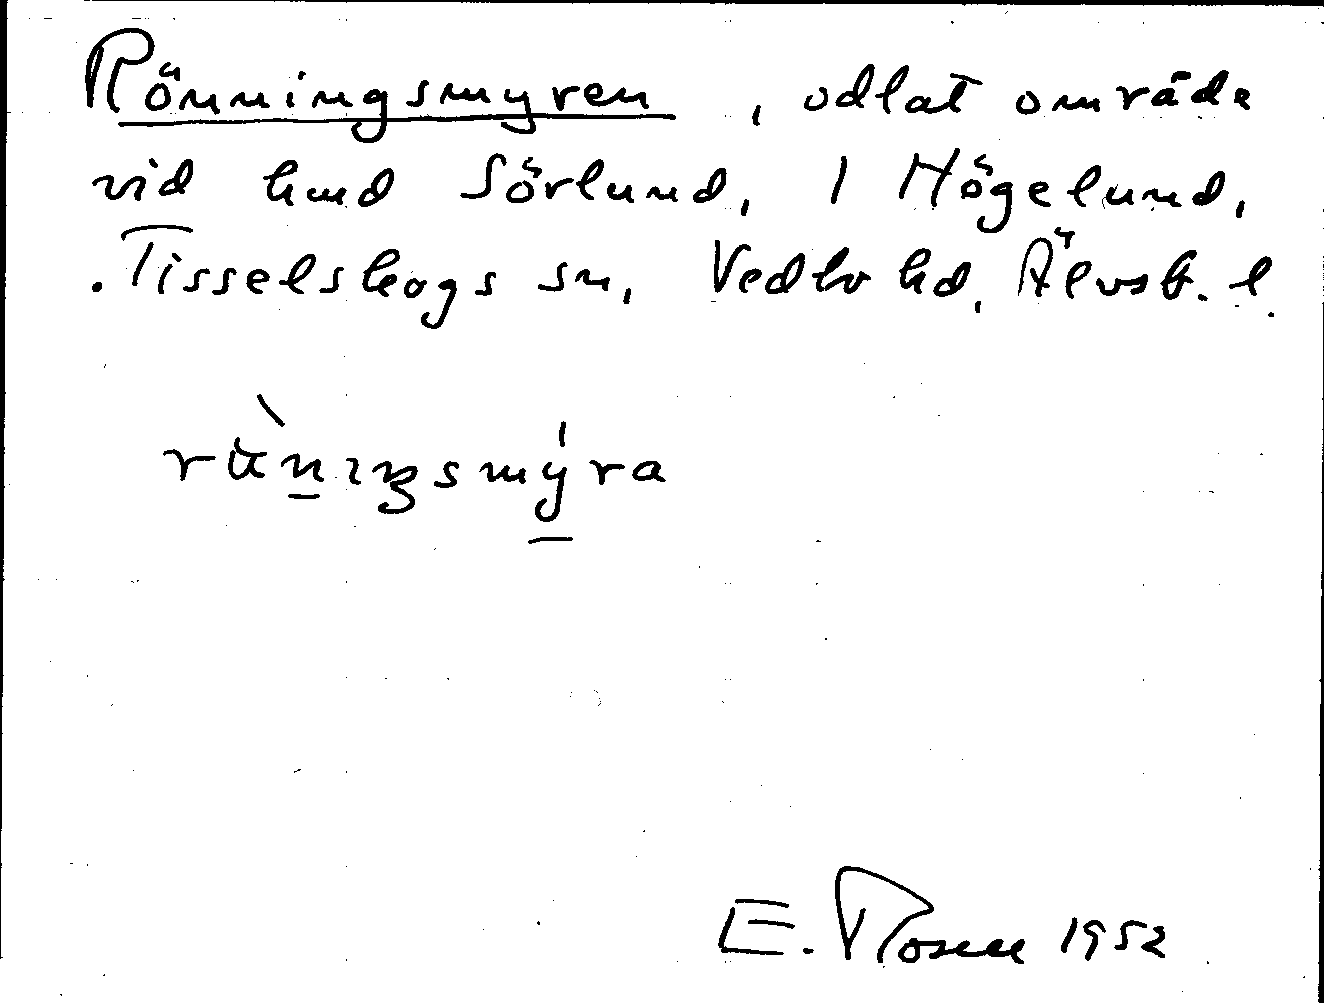 Rönningsmyren, odlat område
vid hmd Sörlund, 1 Högelund,
Tisselskogs sn, Vedbo hd, Älvsb. l.
E. Rosen 1952